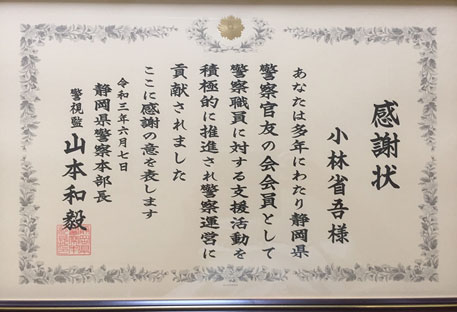 感謝状
小林省吾様
あなたは多年にわたり静岡県
警察官友の会会員として
警察職員に対する支援活動を
積極的に推進され警察運営に
貢献されました
ここに感謝の意を表します
令和三年六月七日
静岡県警察本部長
警視監 山本和毅